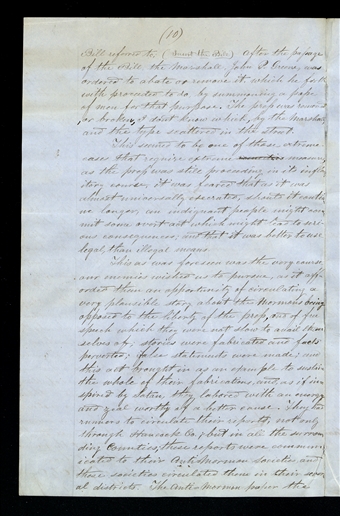 (10)
Bill referred to. (Insert the Bill) After the passage
of the Bill the Marshall, John P. Green, was
ordered to abate or remove it which he forth
with proceeded to do by summoning a posse
of men for that purpose. The press was removed
or broken, I dont know which, by the Marshall
and the type scattered in the street.
This seemed to be one of those extreme
cases that require extreme measures,
as the press was still proceeding in its infla
tory course; it was feared that as it was
almost universally execrated, should it contin
ue longer, an indignant people might com
mit some overt act which might lead to seri
ous consequences, and that it was better to use
legal, than illegal means.
This as was foreseen was the very course
our enemies wished us to pursue, as it aff
orded them an opportunity of circulating a
very plausible story about the Mormons being
opposed to the liberty of the press, and of free
speech which they were not slow to avail them
selves of. stories were fabricated and facts
perverted; false statements were made; and
this act brought in as an example to sustain
the whole of their fabrications, and as if in
spired by Satan they labored with an energy
and zeal worthy of a better cause. They had
runners to circulate their reports, not only
through Hancock Co., but in all the surroun
ding Counties; these reports were commun
icated to their Anti Mormon societies and
those societies circulated them in their sever
al districts. The Anti Mormon paper the